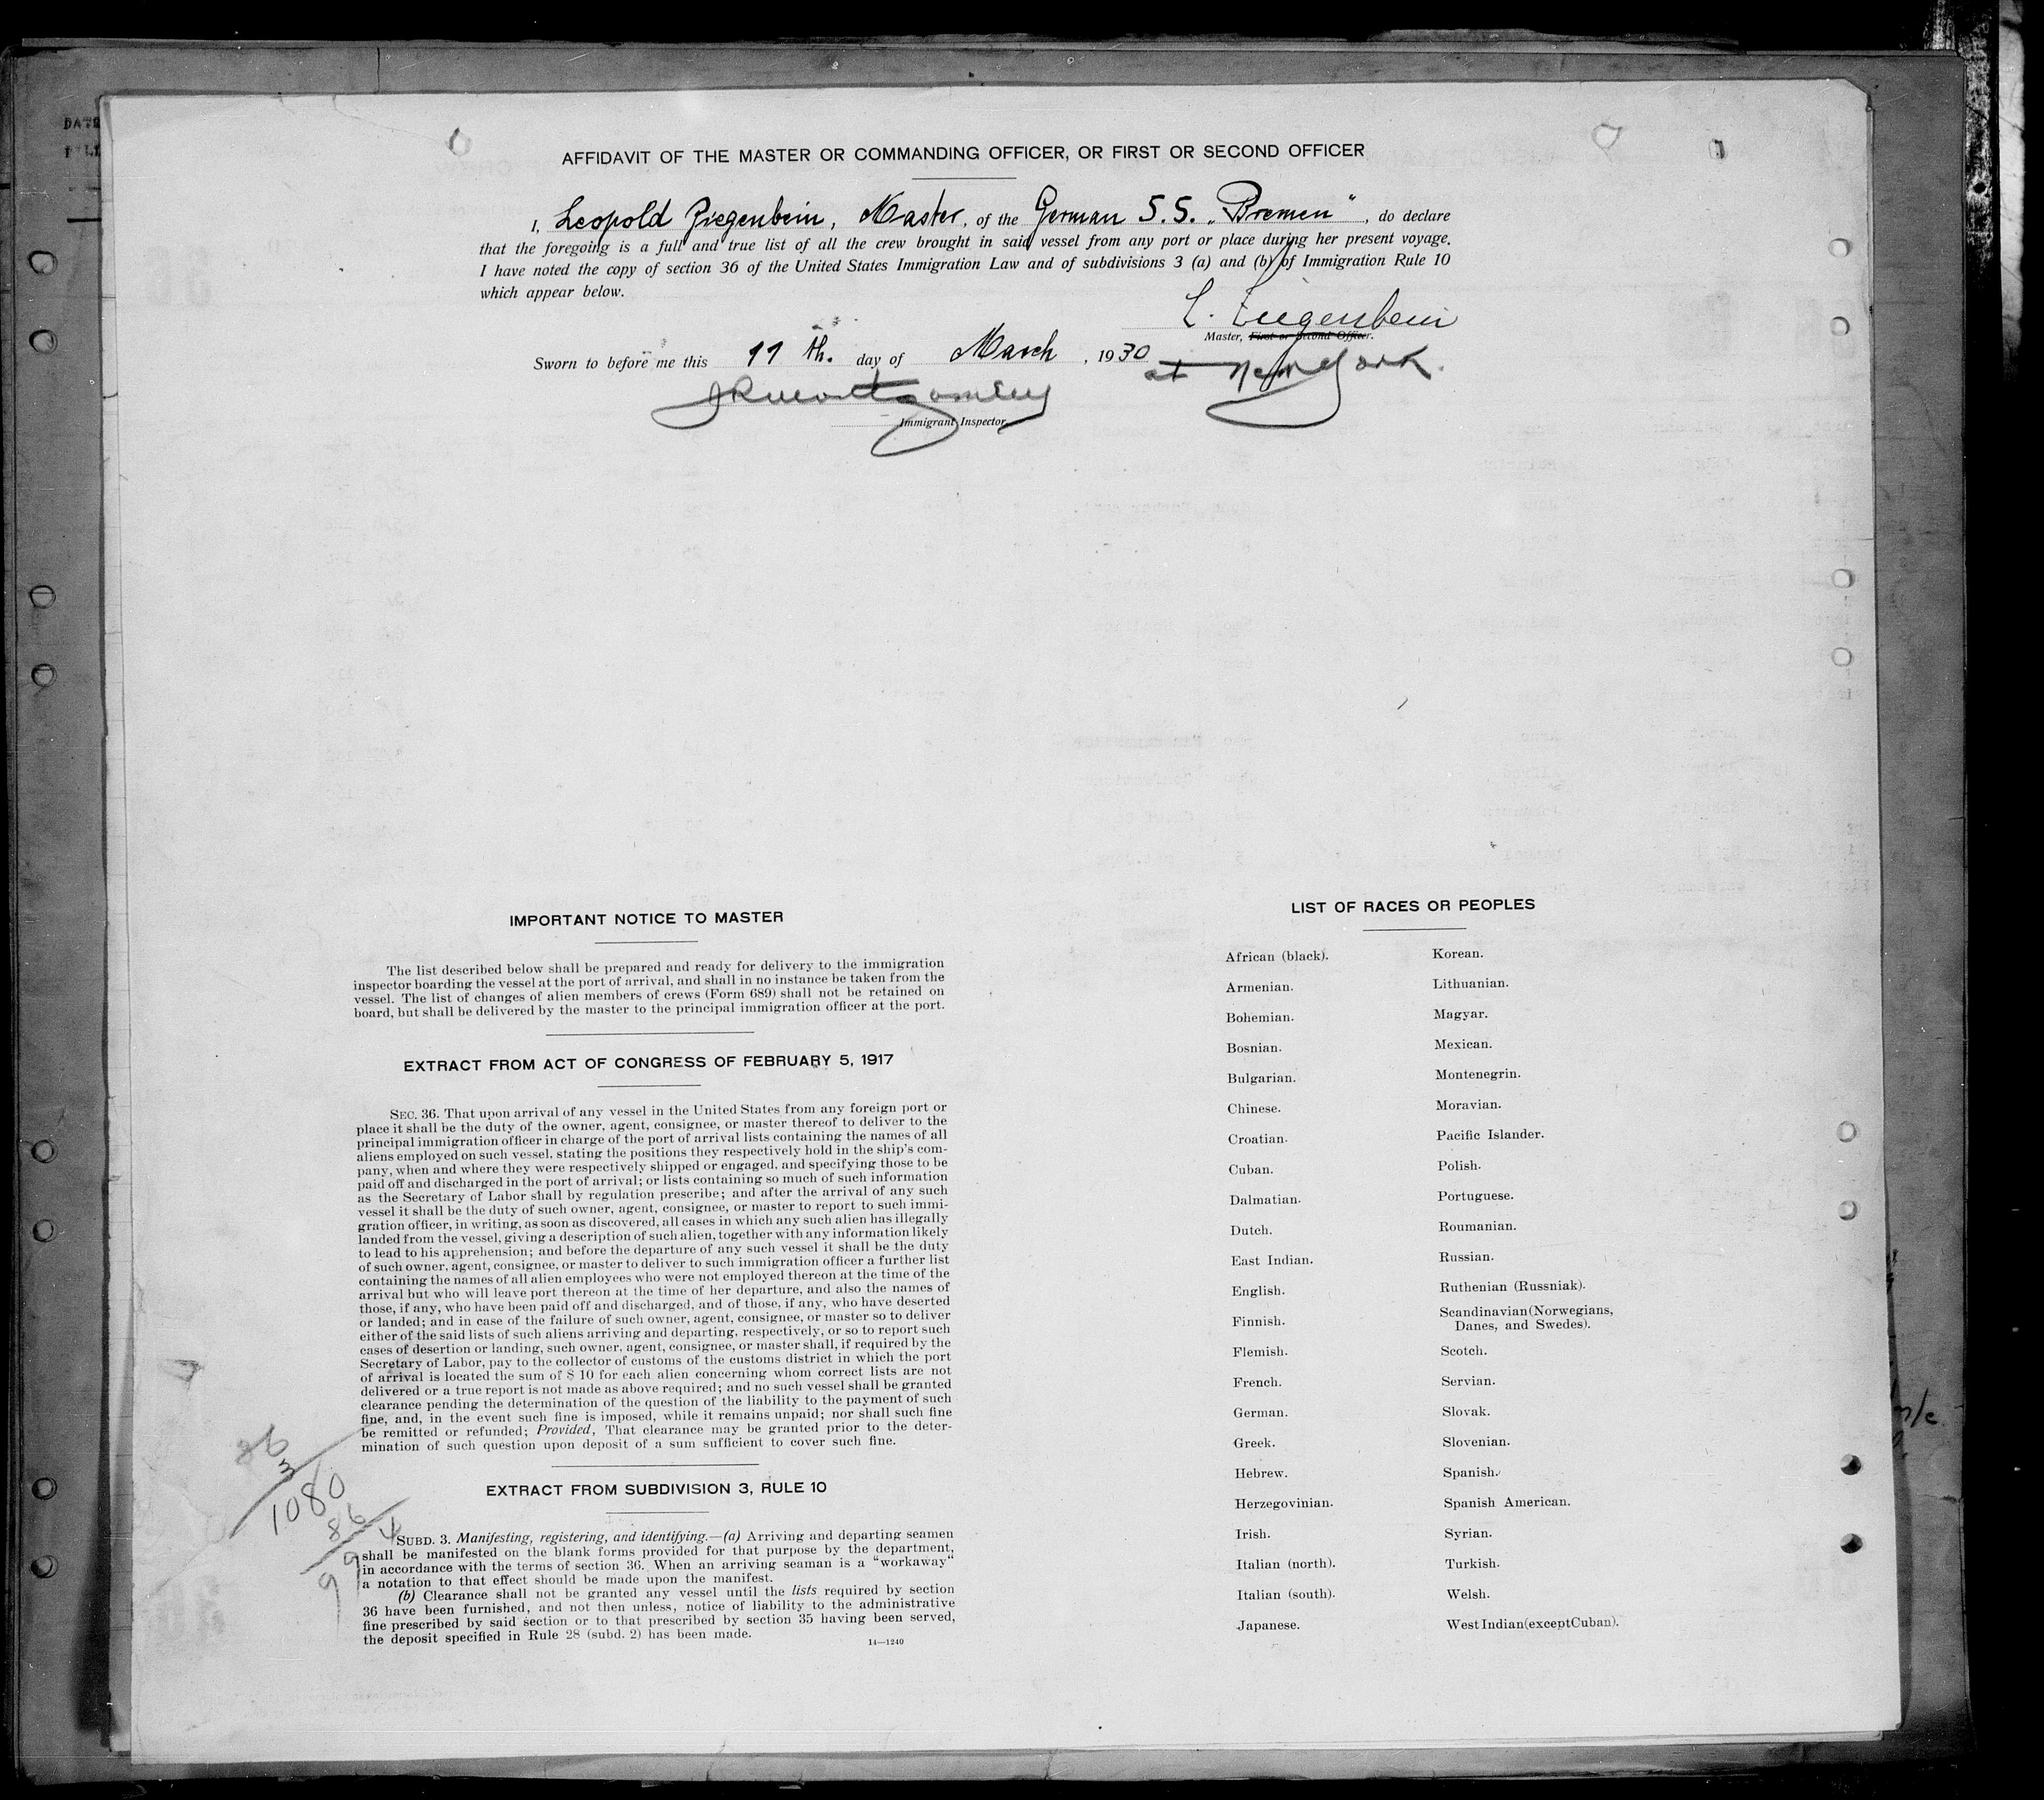 DATE
AFFIDAVIT OF THE MASTER OR COMMANDING OFFICER, OR FIRST OR SECOND OFFICER
I, Leopold Ziegenbein, Master, of the German S.S. „Bremen“, do declare
that the foregoing is a full and true list of all the crew brought in said vessel from any port or place during her present voyage.
I have noted the copy of section 36 of the United States Immigration Law and of subdivisions 3 (a) and (b) of Immigration Rule 10
which appear below.
L. Ziegenbein
Master, First or Second Officer.
Sworn to before me this 11 th. day of March, 1930
at New York.
JR Montgomery
Immigrant Inspector.
IMPORTANT NOTICE TO MASTER
The list described below shall be prepared and ready for delivery to the immigration
inspector boarding the vessel at the port of arrival, and shall in no instance be taken from the
vessel. The list of changes of alien members of crews (Form 689) shall not be retained on
board, but shall be delivered by the master to the principal immigration officer at the port.
EXTRACT FROM ACT OF CONGRESS OF FEBRUARY 5, 1917
SEC. 36. That upon arrival of any vessel in the United States from any foreign port or
place it shall be the duty of the owner, agent, consignee, or master thereof to deliver to the
principal immigration officer in charge of the port of arrival lists containing the names of all
aliens employed on such vessel, stating the positions they respectively hold in the ship's com-
pany, when and where they were respectively shipped or engaged, and specifying those to be
paid off and discharged in the port of arrival; or lists containing so much of such information
as the Secretary of Labor shall by regulation prescribe; and after the arrival of any such
vessel it shall be the duty of such owner, agent, consignee, or master to report to such immi-
gration officer, in writing, as soon as discovered, all cases in which any such alien has illegally
landed from the vessel, giving a description of such alien, together with any information likely
to lead to his apprehension; and before the departure of any such vessel it shall be the duty
of such owner, agent, consignee, or master to deliver to such immigration officer a further list
containing the names of all alien employees who were not employed thereon at the time of the
arrival but who will leave port thereon at the time of her departure, and also the names of
those, if any, who have been paid off and discharged, and of those, if any, who have deserted
or landed; and in case of the failure of such owner, agent, consignee, or master so to deliver
either of the said lists of such aliens arriving and departing, respectively, or so to report such
cases of desertion or landing, such owner, agent, consignee, or master shall, if required by the
Secretary of Labor, pay to the collector of customs of the customs district in which the port
of arrival is located the sum of $ 10 for each alien concerning whom correct lists are not
delivered or a true report is not made as above required; and no such vessel shall be granted
clearance pending the determination of the question of the liability to the payment of such
fine, and, in the event such fine is imposed, while it remains unpaid; nor shall such fine
be remitted or refunded; Provided, That clearance may be granted prior to the deter-
mination of such question upon deposit of a sum sufficient to cover such fine.
EXTRACT FROM SUBDIVISION 3, RULE 10
SUBD. 3. Manifesting, registering, and identifying.—(a) Arriving and departing seamen
shall be manifested on the blank forms provided for that purpose by the department,
in accordance with the terms of section 36. When an arriving seaman is a "workaway"
a notation to that effect should be made upon the manifest.
(b) Clearance shall not be granted any vessel until the lists required by section
36 have been furnished, and not then unless, notice of liability to the administrative
fine prescribed by said section or to that prescribed by section 35 having been served,
the deposit specified in Rule 28 (subd. 2) has been made.
14—1240
86
3
1080
86
994
LIST OF RACES OR PEOPLES
African (black).
Armenian.
Bohemian.
Bosnian.
Bulgarian.
Chinese.
Croatian.
Cuban.
Dalmatian.
Dutch.
East Indian.
English.
Finnish.
Flemish.
French.
German.
Greek.
Hebrew.
Herzegovinian.
Irish.
Italian (north).
Italian (south).
Japanese.
Korean.
Lithuanian.
Magyar.
Mexican.
Montenegrin.
Moravian.
Pacific Islander.
Polish.
Portuguese.
Roumanian.
Russian.
Ruthenian (Russniak).
Scandinavian (Norwegians,
Danes, and Swedes).
Scotch.
Servian.
Slovak.
Slovenian.
Spanish.
Spanish American.
Syrian.
Turkish.
Welsh.
West Indian (except Cuban).